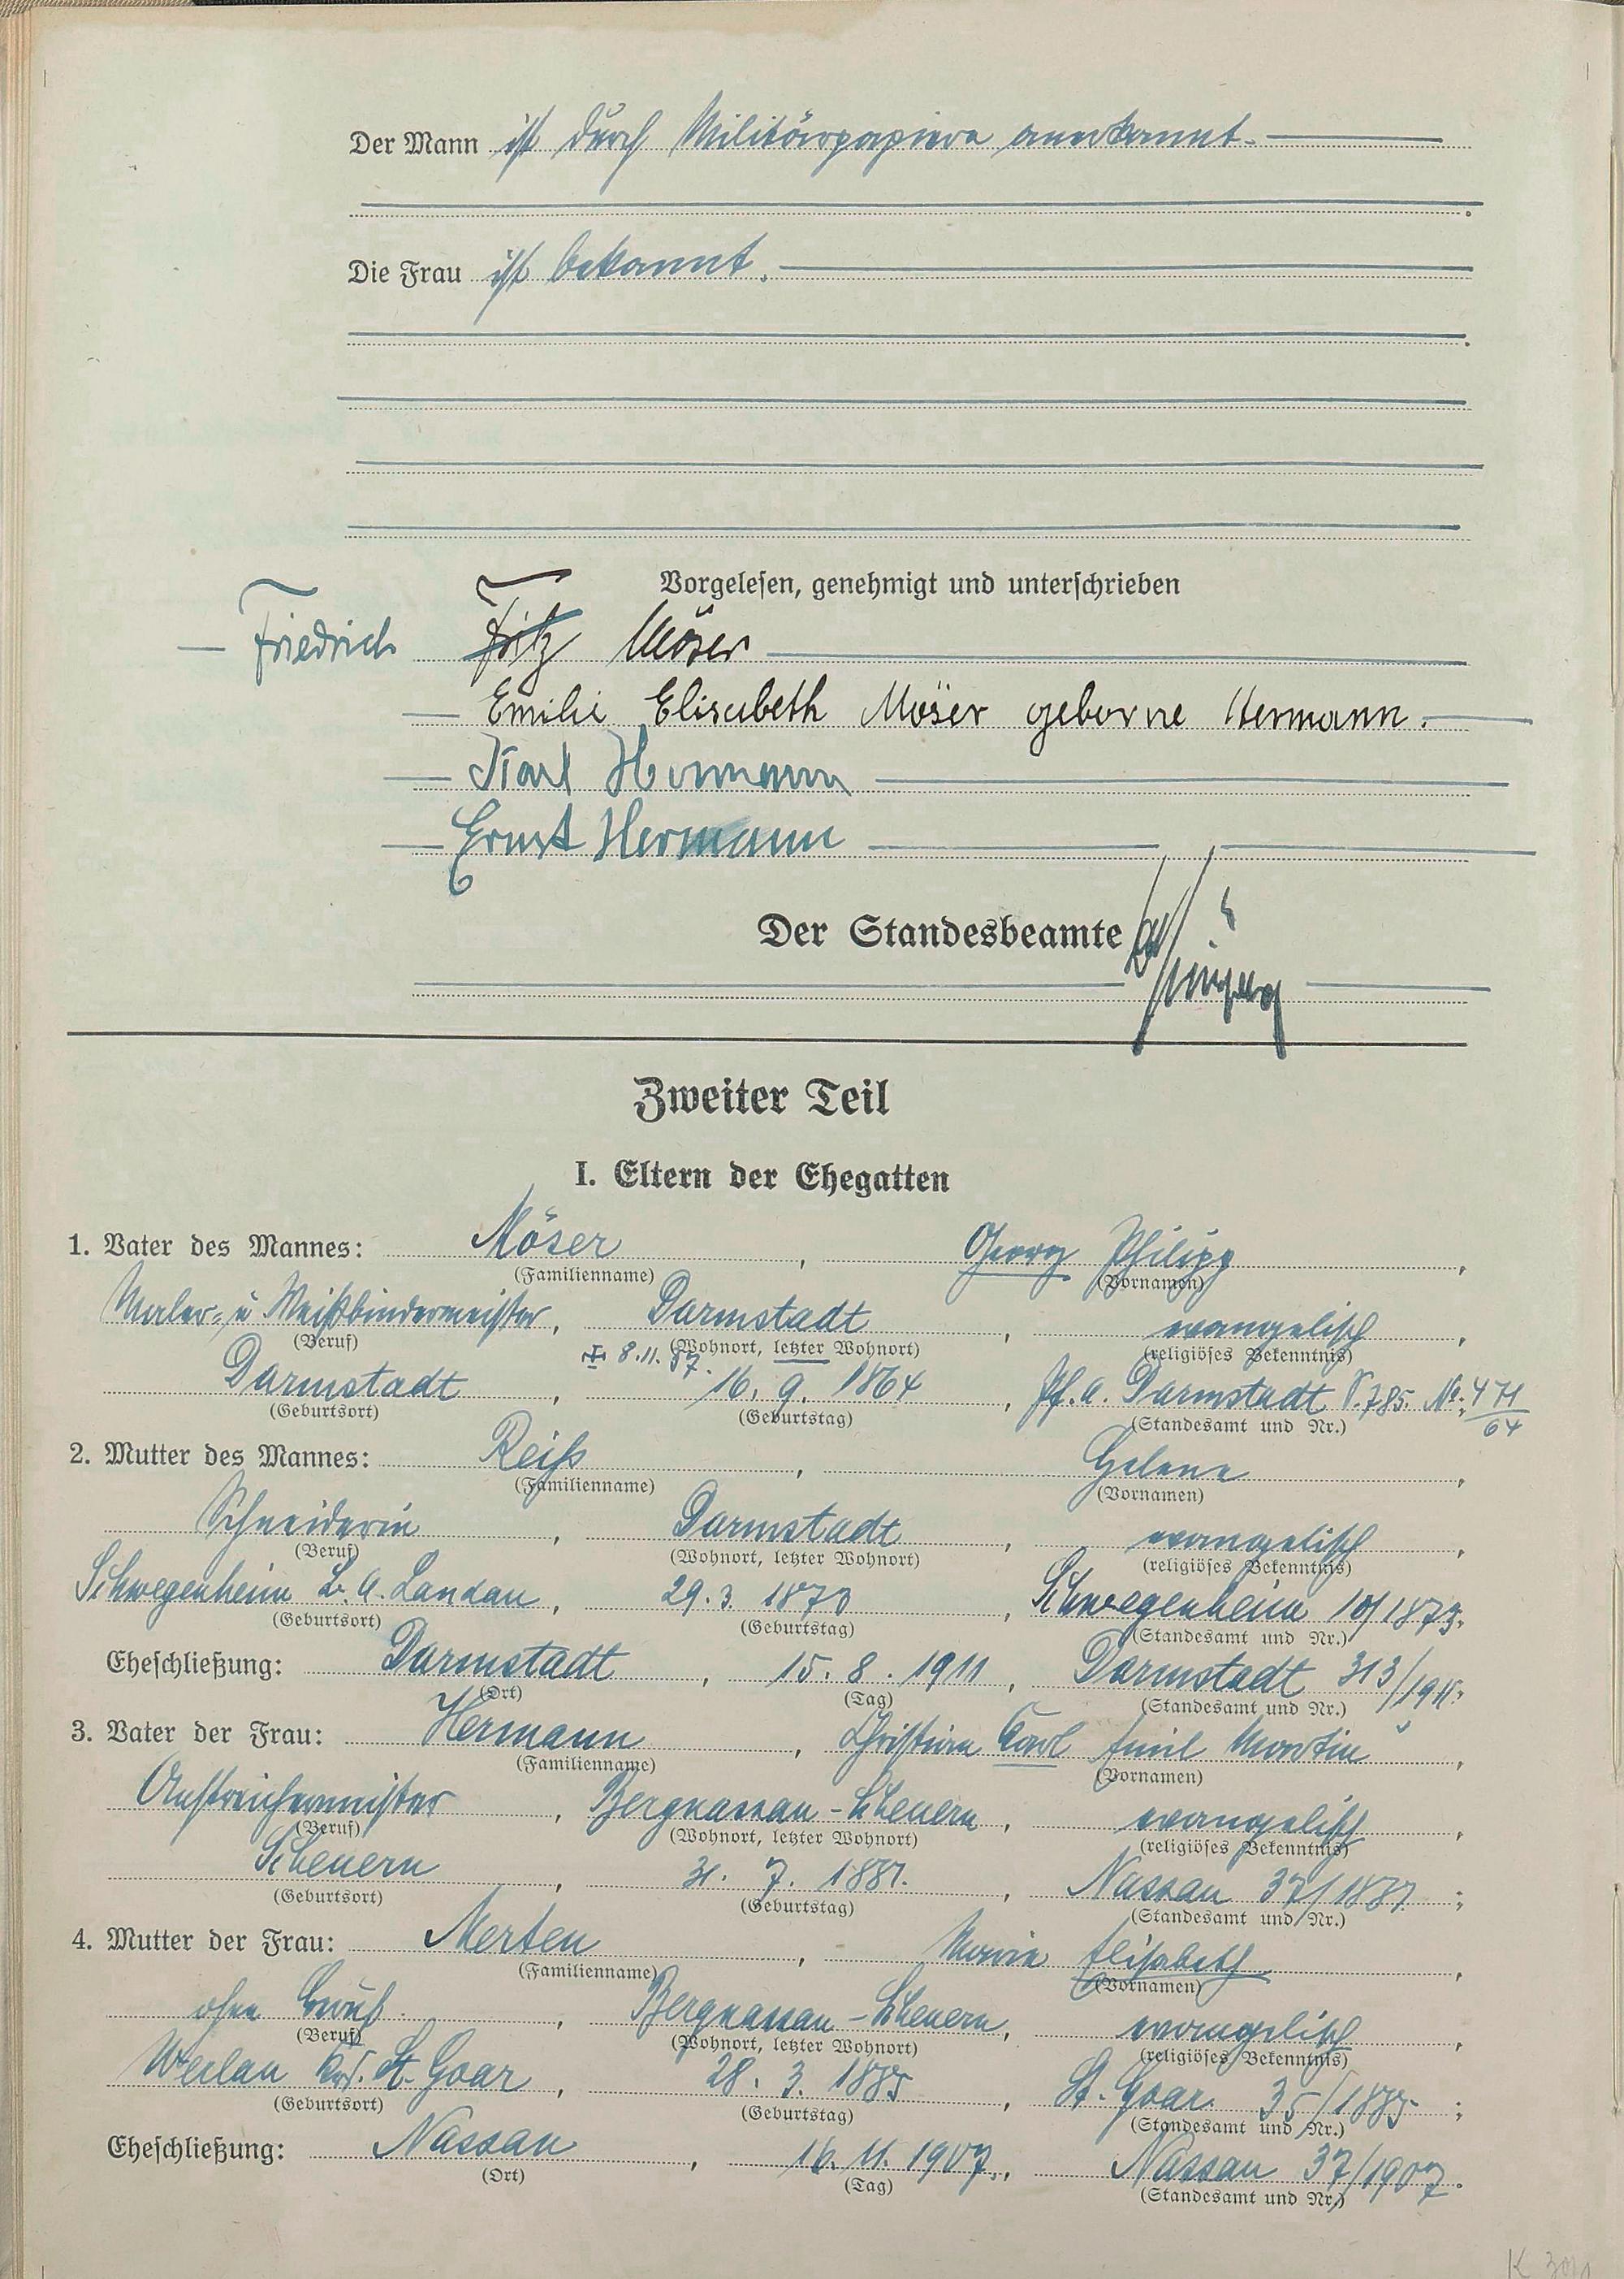 Der Mann ist durch Militärpapiere anerkannt.
Die Frau ist bekannt.
Vorgelesen, genehmigt und unterschrieben
Friedrich Fritz Möser
Emilie Elisabeth Möser geborne Hermann.
Karl Hermann
Ernst Hermann
Der Standesbeamte
Zweiter Teil
I. Eltern der Ehegatten
1. Vater des Mannes: Möser, Georg Philipp,
(Familienname) (Vornamen)
Maler- u Weißbindermeister, Darmstadt, evangelisch,
(Beruf) (Wohnort, letzter Wohnort) (religiöses Bekenntnis)
8.11.37.
Darmstadt, 16. 9. 1864, Pf. A. Darmstadt S. 785. No. 471/64
(Geburtsort) (Geburtstag) (Standesamt und Nr.)
2. Mutter des Mannes: Reiß, Helene,
(Familienname) (Vornamen)
Schneiderin, Darmstadt, evangelisch,
(Beruf) (Wohnort, letzter Wohnort) (religiöses Bekenntnis)
Schwegenheim B. A. Landau, 29. 3. 1873, Schwegenheim 10/1873.
(Geburtsort) (Geburtstag) (Standesamt und Nr.)
Eheschließung: Darmstadt, 15. 8. 1911, Darmstadt 313/1911;
(Ort) (Tag) (Standesamt und Nr.)
3. Vater der Frau: Hermann, Christian Karl Emil Martin,
(Familienname) (Vornamen)
Anstreichermeister, Bergnassau-Scheuern, evangelisch,
(Beruf) (Wohnort, letzter Wohnort) (religiöses Bekenntnis)
Scheuern, 31. 7. 1881., Nassau 37/1881;
(Geburtsort) (Geburtstag) (Standesamt und Nr.)
4. Mutter der Frau: Merten, Maria Elisabeth,
(Familienname) (Vornamen)
ohne Beruf, Bergnassau-Scheuern, evangelisch,
(Beruf) (Wohnort, letzter Wohnort) (religiöses Bekenntnis)
Werlau Krs. St. Goar, 28. 3. 1885, St. Goar 35/1885;
(Geburtsort) (Geburtstag) (Standesamt und Nr.)
Eheschließung: Nassau, 16. 11. 1907., Nassau 37/1907.
(Ort) (Tag) (Standesamt und Nr.)